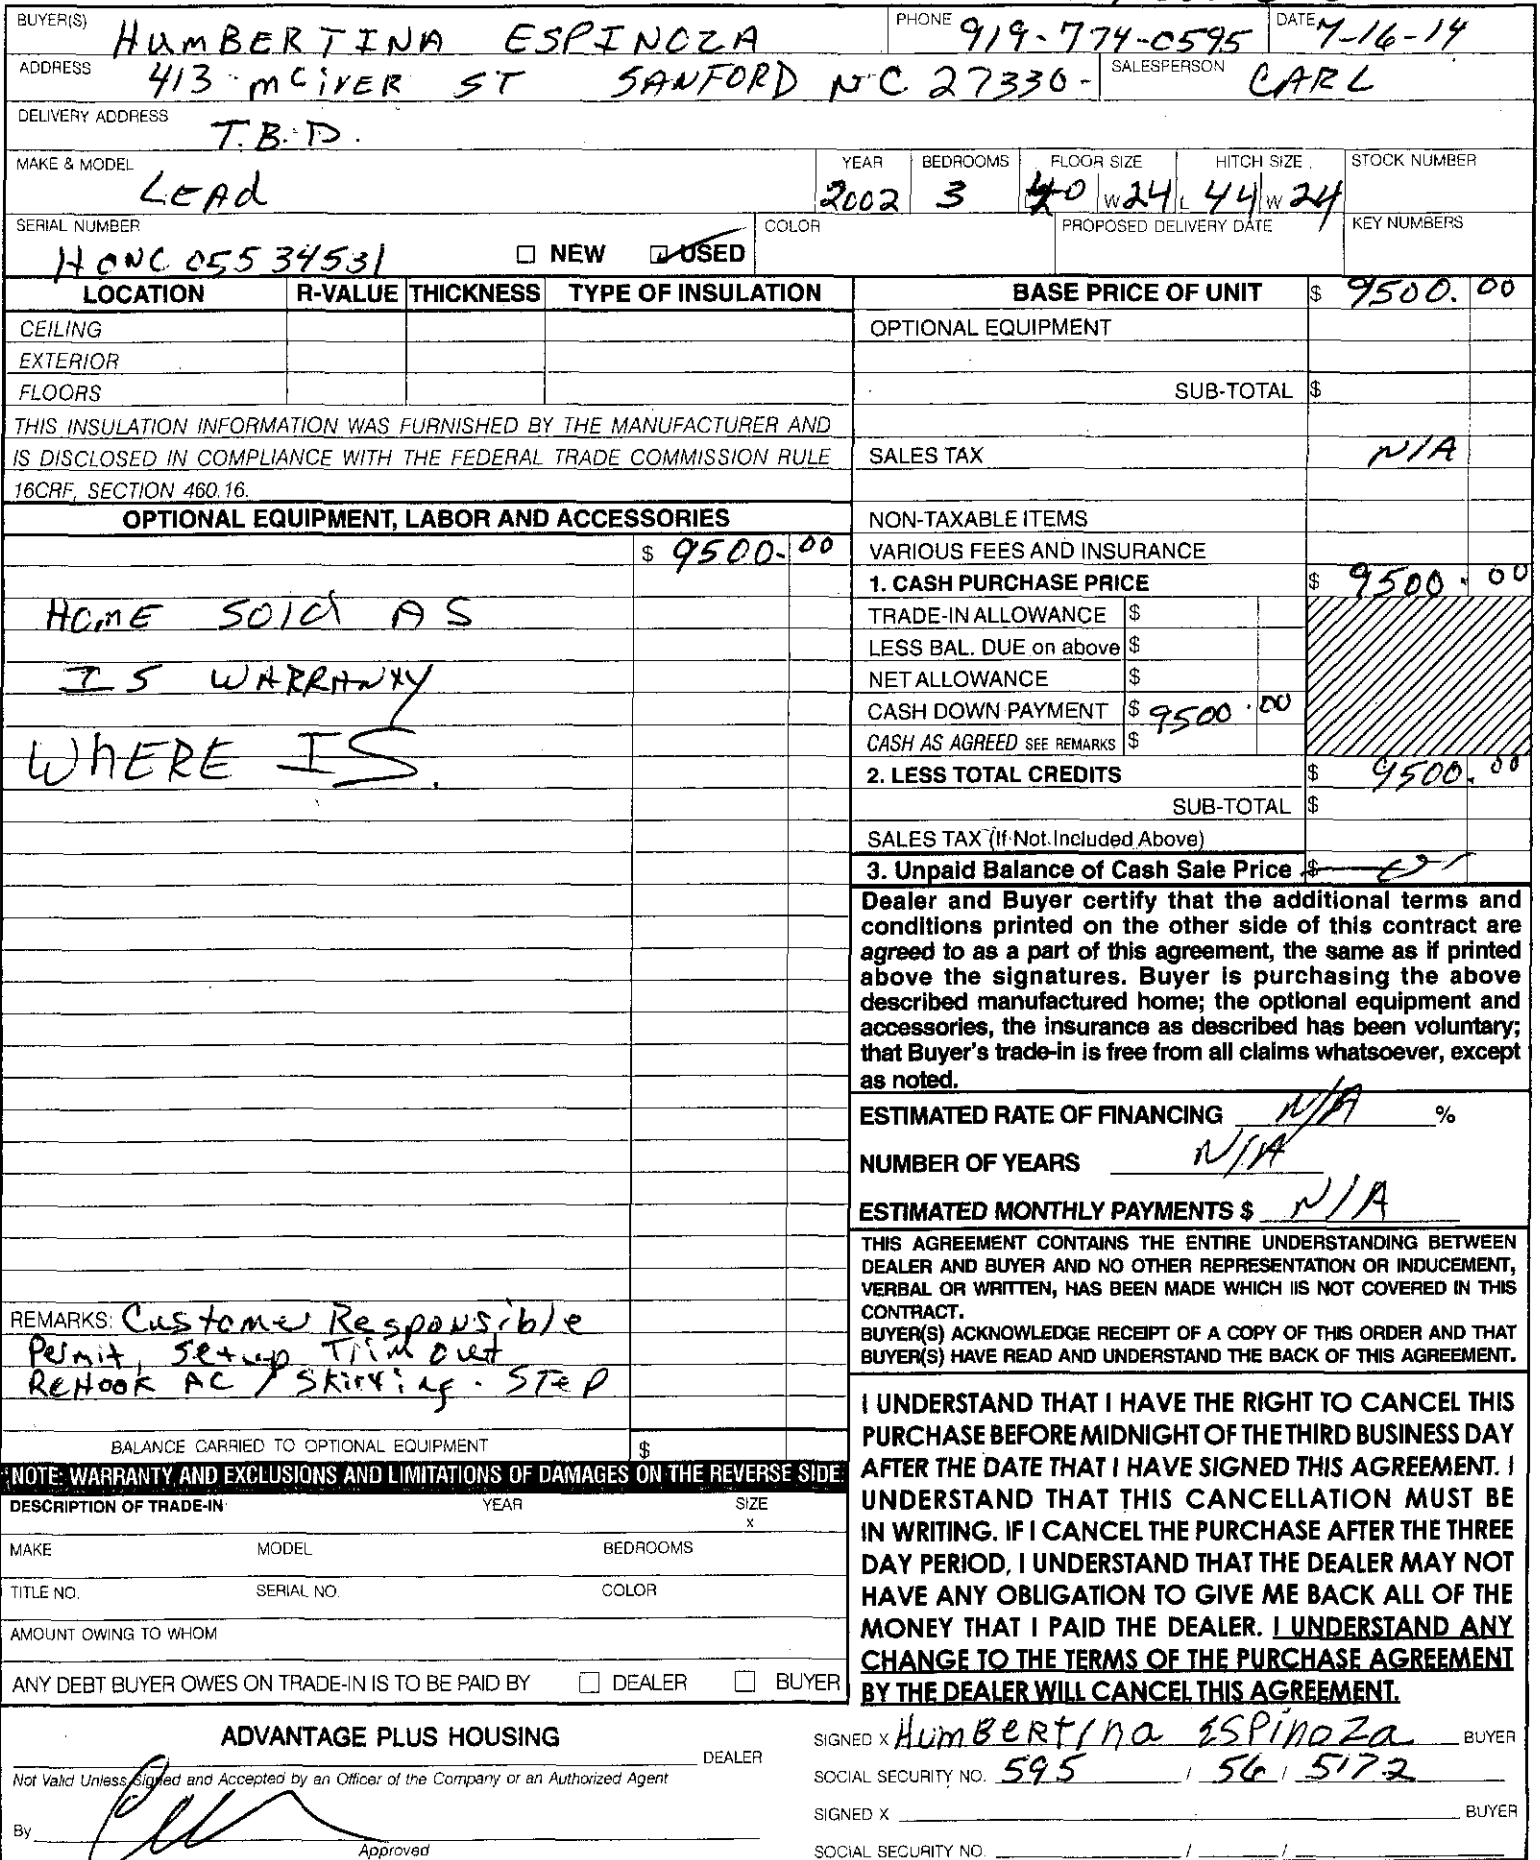 BUYER(S) HUMBERTINA ESPINOZA PHONE 919-774-0595 DATE 7-16-14
ADDRESS 413 MCIVER ST SANFORD N C 27330- SALESPERSON CARL
DELIVERY ADDRESS T.B.D.
MAKE & MODEL LEAd YEAR 2002 BEDROOMS 3 FLOOR SIZE 40 W 24 HITCH SIZE L 44 W 24 STOCK NUMBER
SERIAL NUMBER HONC 05534531 ☐ NEW ☑ USED COLOR PROPOSED DELIVERY DATE KEY NUMBERS
LOCATION R-VALUE THICKNESS TYPE OF INSULATION
CEILING
EXTERIOR
FLOORS
THIS INSULATION INFORMATION WAS FURNISHED BY THE MANUFACTURER AND
IS DISCLOSED IN COMPLIANCE WITH THE FEDERAL TRADE COMMISSION RULE
16CRF, SECTION 460.16.
OPTIONAL EQUIPMENT, LABOR AND ACCESSORIES
$ 9500.00
HOME SOLD AS
IS WARRANXY
WHERE IS.
REMARKS: Customer Responsible
Permit, Setup Trim out
ReHook AC / Skirting. STEP
BALANCE CARRIED TO OPTIONAL EQUIPMENT $
NOTE: WARRANTY AND EXCLUSIONS AND LIMITATIONS OF DAMAGES ON THE REVERSE SIDE
DESCRIPTION OF TRADE-IN YEAR SIZE x
MAKE MODEL BEDROOMS
TITLE NO. SERIAL NO. COLOR
AMOUNT OWING TO WHOM
ANY DEBT BUYER OWES ON TRADE-IN IS TO BE PAID BY ☐ DEALER ☐ BUYER
BASE PRICE OF UNIT $ 9500.00
OPTIONAL EQUIPMENT
SUB-TOTAL $
SALES TAX N/A
NON-TAXABLE ITEMS
VARIOUS FEES AND INSURANCE
1. CASH PURCHASE PRICE $ 9500.00
TRADE-IN ALLOWANCE $
LESS BAL. DUE on above $
NET ALLOWANCE $
CASH DOWN PAYMENT $ 9500.00
CASH AS AGREED SEE REMARKS $
2. LESS TOTAL CREDITS $ 9500.00
SUB-TOTAL $
SALES TAX (If Not Included Above)
3. Unpaid Balance of Cash Sale Price $
Dealer and Buyer certify that the additional terms and
conditions printed on the other side of this contract are
agreed to as a part of this agreement, the same as if printed
above the signatures. Buyer is purchasing the above
described manufactured home; the optional equipment and
accessories, the insurance as described has been voluntary;
that Buyer's trade-in is free from all claims whatsoever, except
as noted.
ESTIMATED RATE OF FINANCING N/A %
NUMBER OF YEARS N/A
ESTIMATED MONTHLY PAYMENTS $ N/A
THIS AGREEMENT CONTAINS THE ENTIRE UNDERSTANDING BETWEEN
DEALER AND BUYER AND NO OTHER REPRESENTATION OR INDUCEMENT,
VERBAL OR WRITTEN, HAS BEEN MADE WHICH IIS NOT COVERED IN THIS
CONTRACT.
BUYER(S) ACKNOWLEDGE RECEIPT OF A COPY OF THIS ORDER AND THAT
BUYER(S) HAVE READ AND UNDERSTAND THE BACK OF THIS AGREEMENT.
I UNDERSTAND THAT I HAVE THE RIGHT TO CANCEL THIS
PURCHASE BEFORE MIDNIGHT OF THE THIRD BUSINESS DAY
AFTER THE DATE THAT I HAVE SIGNED THIS AGREEMENT. I
UNDERSTAND THAT THIS CANCELLATION MUST BE
IN WRITING. IF I CANCEL THE PURCHASE AFTER THE THREE
DAY PERIOD, I UNDERSTAND THAT THE DEALER MAY NOT
HAVE ANY OBLIGATION TO GIVE ME BACK ALL OF THE
MONEY THAT I PAID THE DEALER. I UNDERSTAND ANY
CHANGE TO THE TERMS OF THE PURCHASE AGREEMENT
BY THE DEALER WILL CANCEL THIS AGREEMENT.
ADVANTAGE PLUS HOUSING
DEALER
Not Valid Unless Signed and Accepted by an Officer of the Company or an Authorized Agent
By
Approved
SIGNED X HUMBERTINA ESPINOZA BUYER
SOCIAL SECURITY NO. 595 / 56 / 5172
SIGNED X BUYER
SOCIAL SECURITY NO. / /